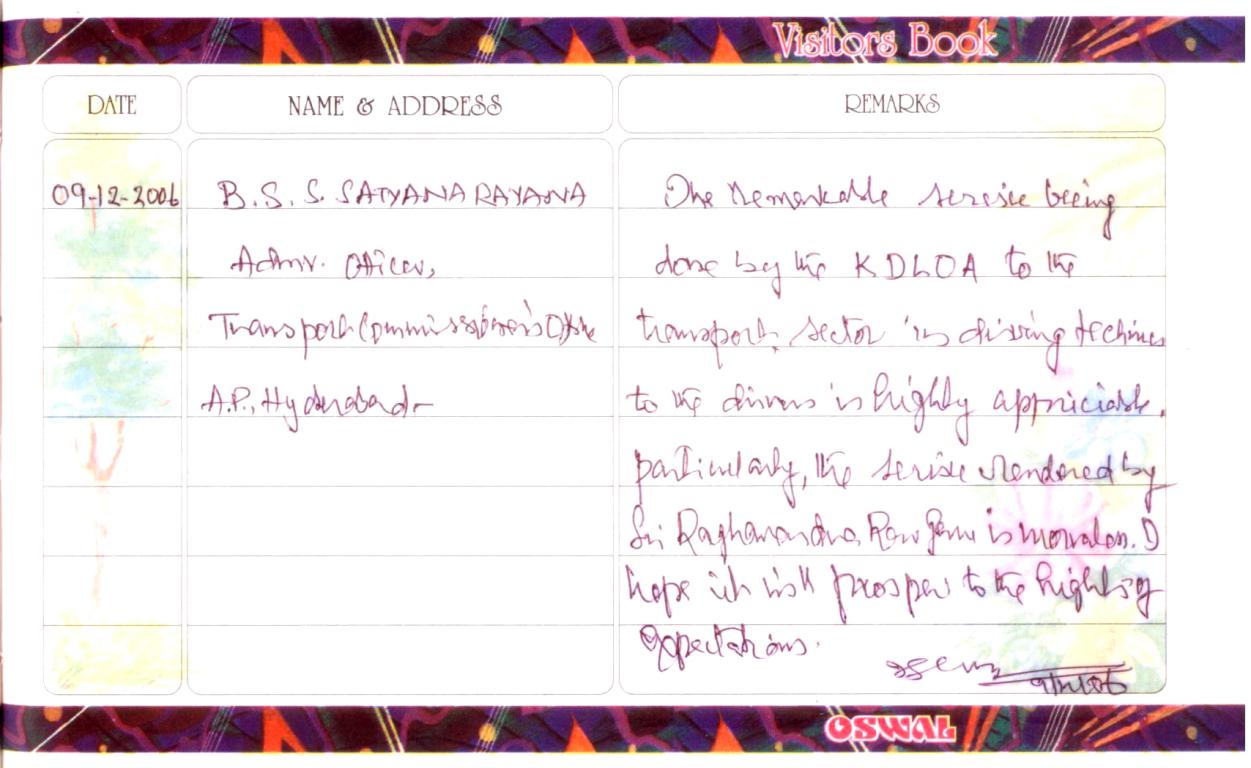 Visitors Book
DATE
NAME & ADDRESS
REMARKS
09-12-2006
B. S. S. SATYANARAYANA
Admv. Officer,
Transport Commissioner's Office
A.P., Hyderabad-
The Remarkable service being
done by the KDLOA to the
transport sector in driving
to the drivers is highly appriciable.
particularly, the service rendered by
Sri Raghavendra Rao Garu is. I
hope it will prosper to the highly
expectations.
9/12/06
OSWAL